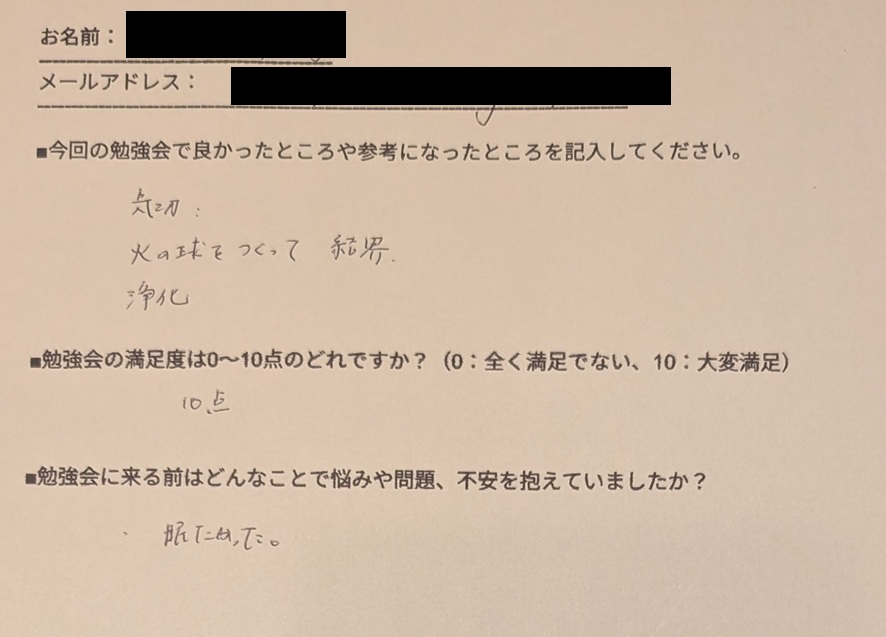 お名前：
メールアドレス：
■今回の勉強会で良かったところや参考になったところを記入してください。
気功：
火の球をつくって 結界.
浄化
■勉強会の満足度は0～10点のどれですか？（0：全く満足でない、10：大変満足）
10点
■勉強会に来る前はどんなことで悩みや問題、不安を抱えていましたか？